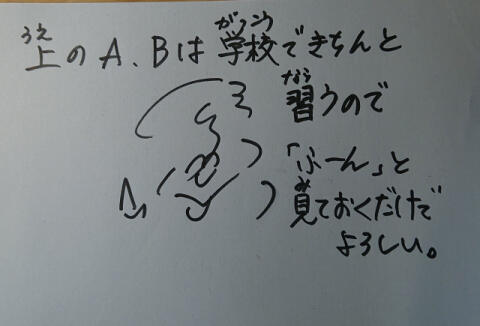 上のA、Bは学校できちんと
うえ がっこう
習うので
なら
「ふーん」と
見ておくだけで
み
よろしい。